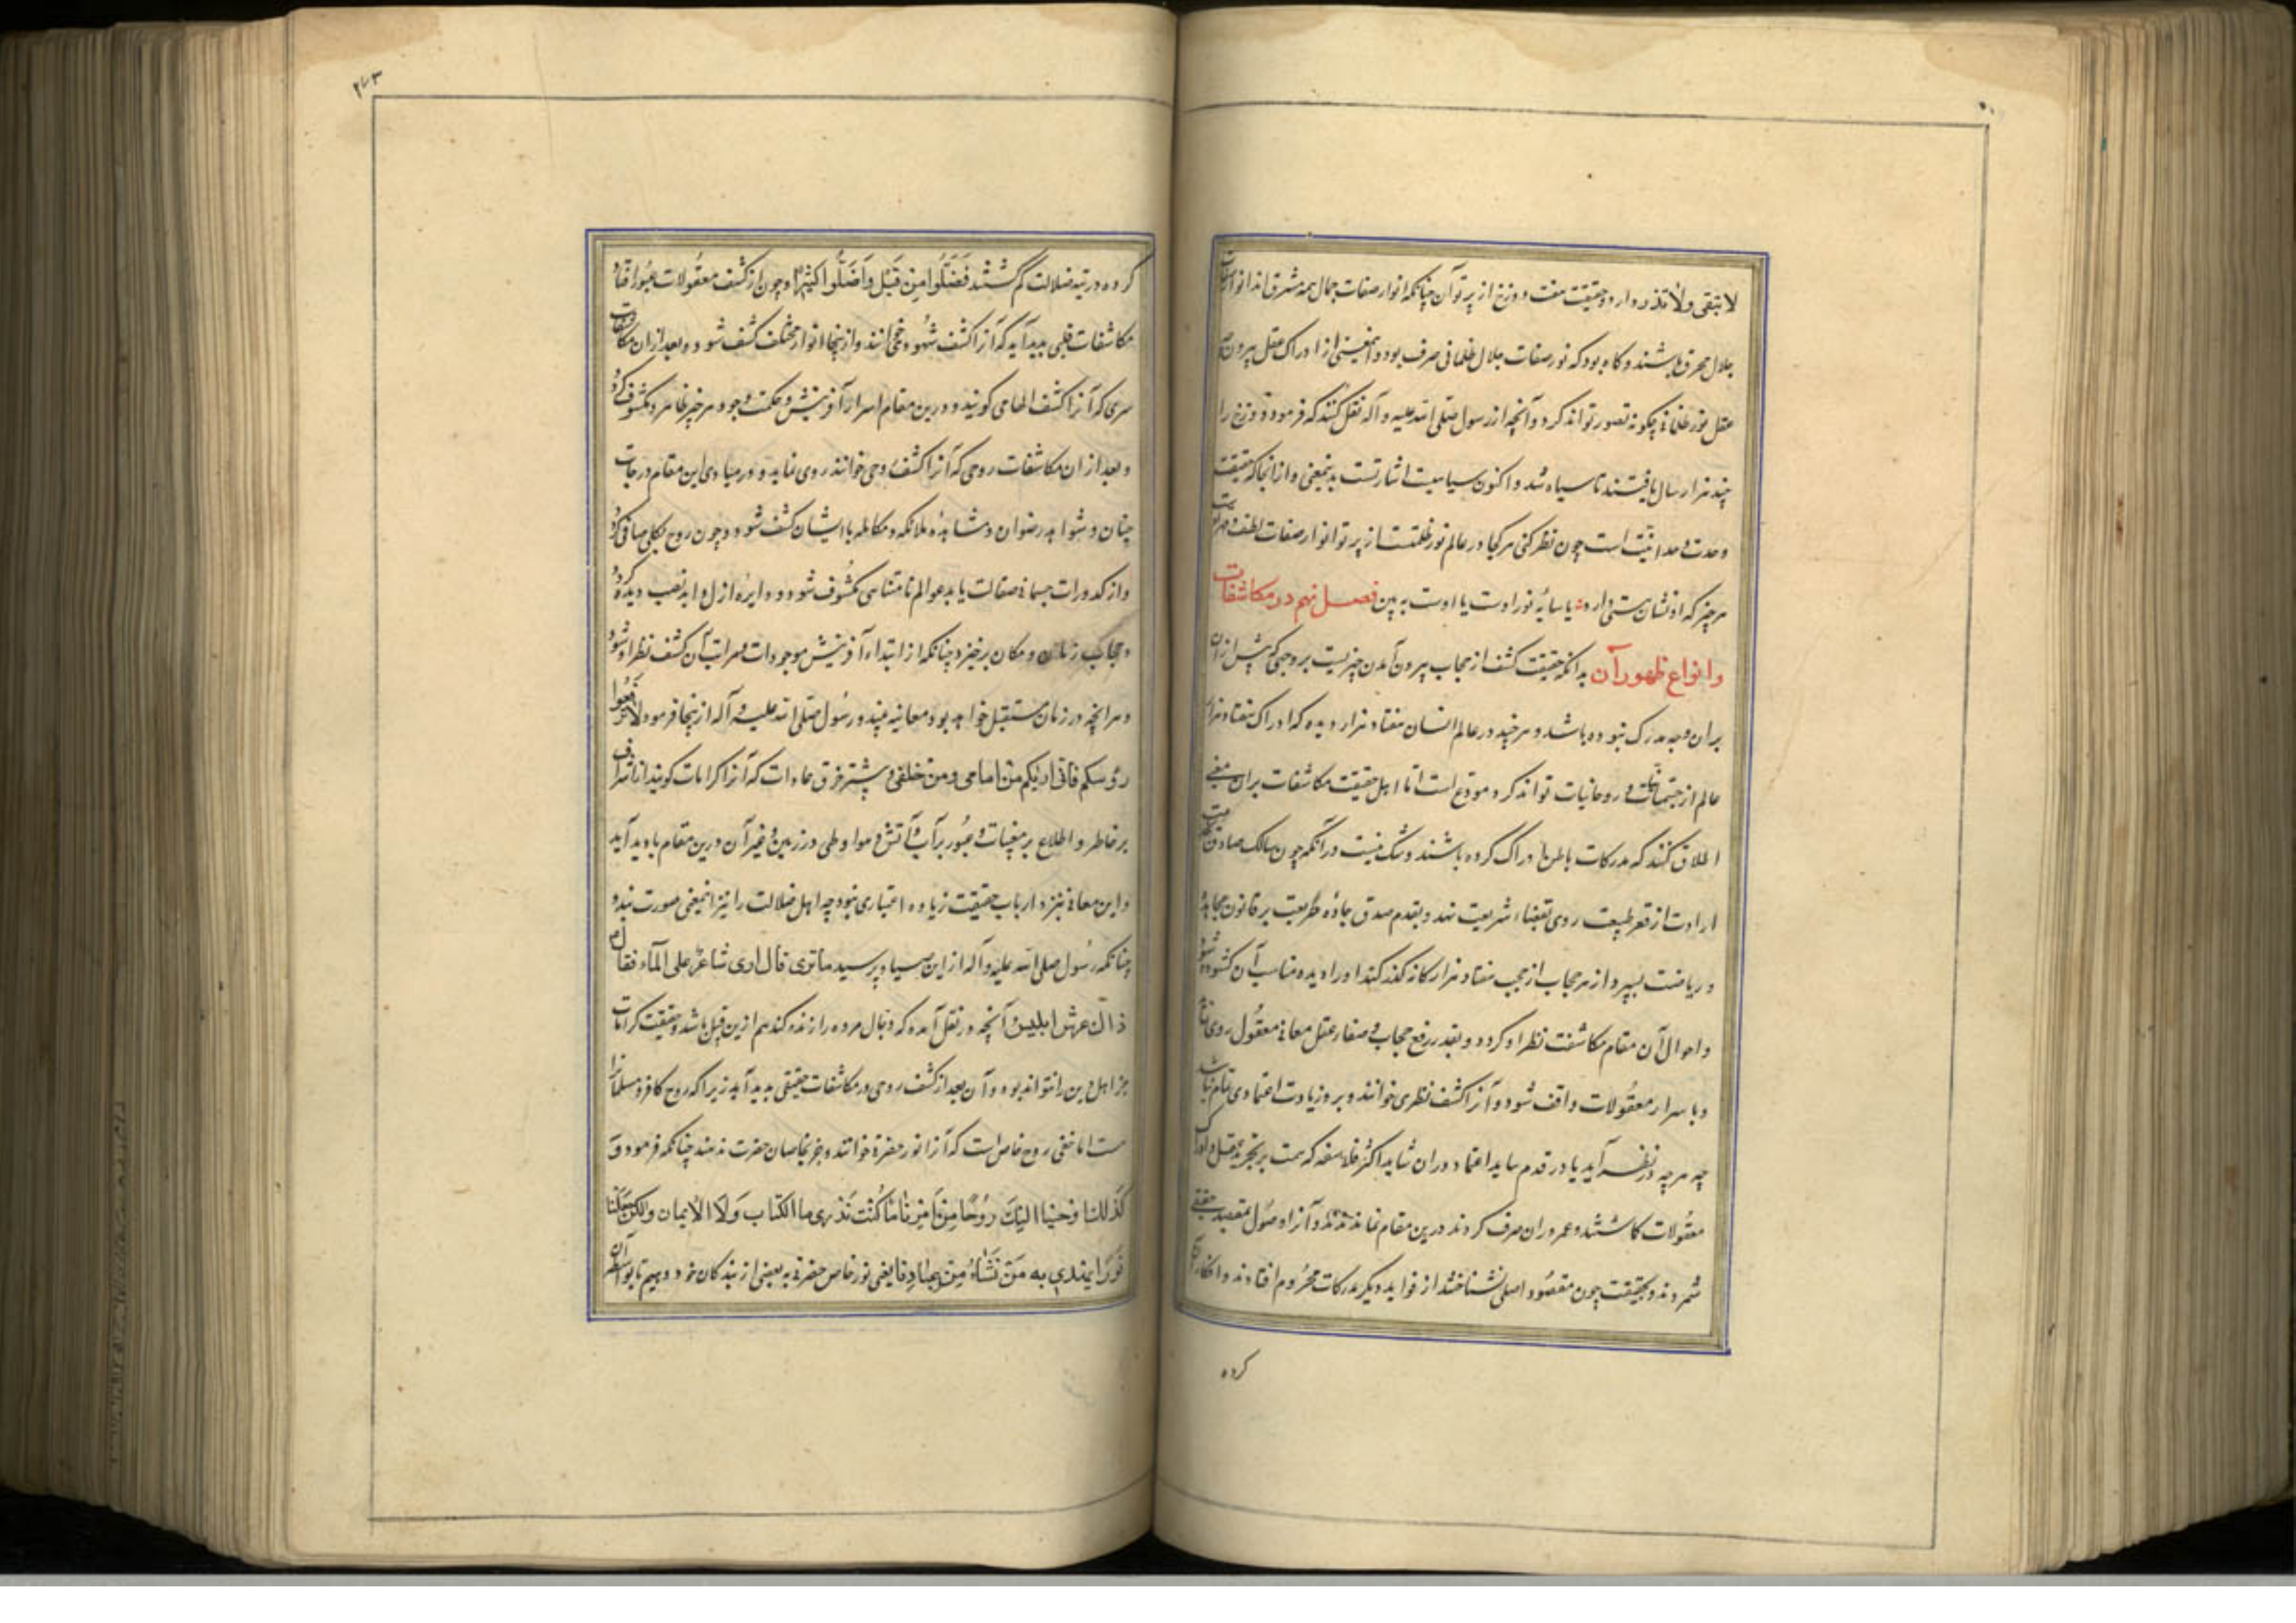 لا تبقی ولا تذر دارد و حقیقت هفت دوزخ از پرتو آن چنانکه انوار صفات جمال همه مشرق اند انوار صفات
جلال محرق باشند و گاه بود که نور صفات جلال ظلمانی صرف بود و اینمعنی از ادراک عقل بیرون
عقل نور ظلمانی چگونه تصور تواند کرد و آنچه از رسول صلی الله علیه و آله نقل کنند که فرمود دوزخ را
چند هزار سال تافتند تا سیاه شد و اکنون سیاهیست اشارتست بدینمعنی و از انجا که حقیقت
وحدت وحدانیت است چون نظر کنی هر کجا در عالم نور ظلمتست از پرتو انوار صفات لطف و قهر
هر چیز که او نشان هستی دارد یا سایه نور اوست یا اوست به بین فصل نهم در مکاشفات
و انواع ظهور آن بدانکه حقیقت کشف از حجاب بیرون آمدن چیزیست بر وجهی که پیش از ان
بران وجه مدرک نبوده باشد و هر چند در عالم انسان هفتاد هزار دیده که ادراک هفتاد هزار
عالم از جسمانیات و روحانیات تواند کرد مودع است اما اهل حقیقت مکاشفات بران معنی
اطلاق کنند که مدرکات باطن ادراک کرده باشند و شک نیست در آنکه چون سالک صادق
ارادت از قعر طبیعت روی بفضاء شریعت نهد و بقدم صدق جاده طریقت بر قانون مجاهده
و ریاضت بسپرد از هر حجاب از حجب هفتاد هزار کانه گذر کند او را دیده مناسب آن گشوده شود
و احوال آن مقام مکاشفت نظر او گردد و بقدر رفع حجاب و صفاء عقل معانی معقول روی نماید
و باسرار معقولات واقف شود و آنرا کشف نظری خوانند و برو زیادت اعتمادی تمام نباشد
چه هر چه در نظر آید یا در قدم ساید اعتماد دوران شاید اکثر فلاسفه که همت بر تجرید عقل و ادراک
معقولات گماشتند و عمر دران صرف کردند درین مقام نماندند و آنرا وصول بمقصد حقیقی
شمردند و بحقیقت چون مقصود اصلی نشناختند از فواید دیگر مدرکات محروم افتادند و انکار آن
کرده
۲۷۳
کرده در تیه ضلالت گم گشتند فَضَلُّوا مِن قَبْل وَأَضَلُّوا کثیرًا و چون از کشف معقولات عبور افتاد
مکاشفات قلبی پدید آید که آنرا کشف شهودی خوانند و از ینجا انوار مختلف کشف شود و بعد از ان مکاشفات
سری که آنرا کشف الهامی گویند و درین مقام اسرار آفرینش و حکمت وجود هر چیز ظاهر و مکشوف گردد
و بعد از ان مکاشفات روحی که آنرا کشف روحی خوانند روی نماید و در مبادی این مقام درجات
جنان و شواهد رضوان و مشاهده ملائکه و مکالمه با ایشان کشف شود و چون روح بکلی صافی گردد
و از کدورات جسمانی صقالت یابد عوالم نامتناهی مکشوف شود و دایره ازل و ابد نصب دیده گردد
و حجاب زمان و مکان برخیزد چنانکه از ابتداء آفرینش موجودات و مراتب آن کشف نظر او شود
و هر آنچه در زمان مستقبل خواهد بود معاینه بیند و رسول صلی الله علیه و آله از ینجا فرمود لا ترفعوا
رؤسکم فانی اریکم من امامی و من خلفی و بیشتر خرق عادات که آنرا کرامات گویند از اشراف
بر خاطر و اطلاع بر مغیبات و عبور بر آب و آتش و هوا و طی در زمین و غیر آن درین مقام بادید آید
و این معانی نزد ارباب حقیقت زیاده اعتباری نبود چه اهل ضلالت را نیز اینمعنی صورت بندد
چنانکه رسول صلی الله علیه و آله از ابن صیاد پرسید ما تری قال اری شاعرًا علی الماء فقال
ذاک عرش ابلیس و آنچه در نقل آمده که دجال مرده را زنده کند هم ازین قبیل باشد و حقیقت کرامات
جز اهل دین را نتواند بود و آن بعد از کشف روحی در مکاشفات حقیقی پدید آید زیرا که روح کافر و مسلمانرا
هست اما خفی روح خاص است که آنرا نور حضرت خوانند و جز بخاصان حضرت ندهند چنانکه فرمود وَ
کَذَلِکَ اوحینا الیکَ رُوحًا مِن اَمرِنا مَا کُنتَ تَدری ما الکتاب وَلَا الایمان ولکن جَعَلنا
نورًا نهدی به مَن نَشَاءُ مِن عِبَادِنا یعنی نور خاص حضرتی به بعضی از بندگان خود دهیم تا بواسطه آن